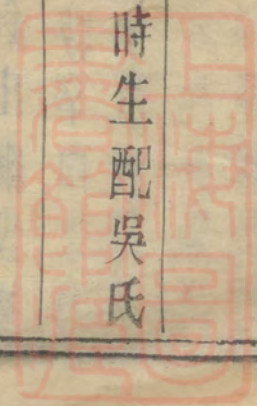 時生配吳氏